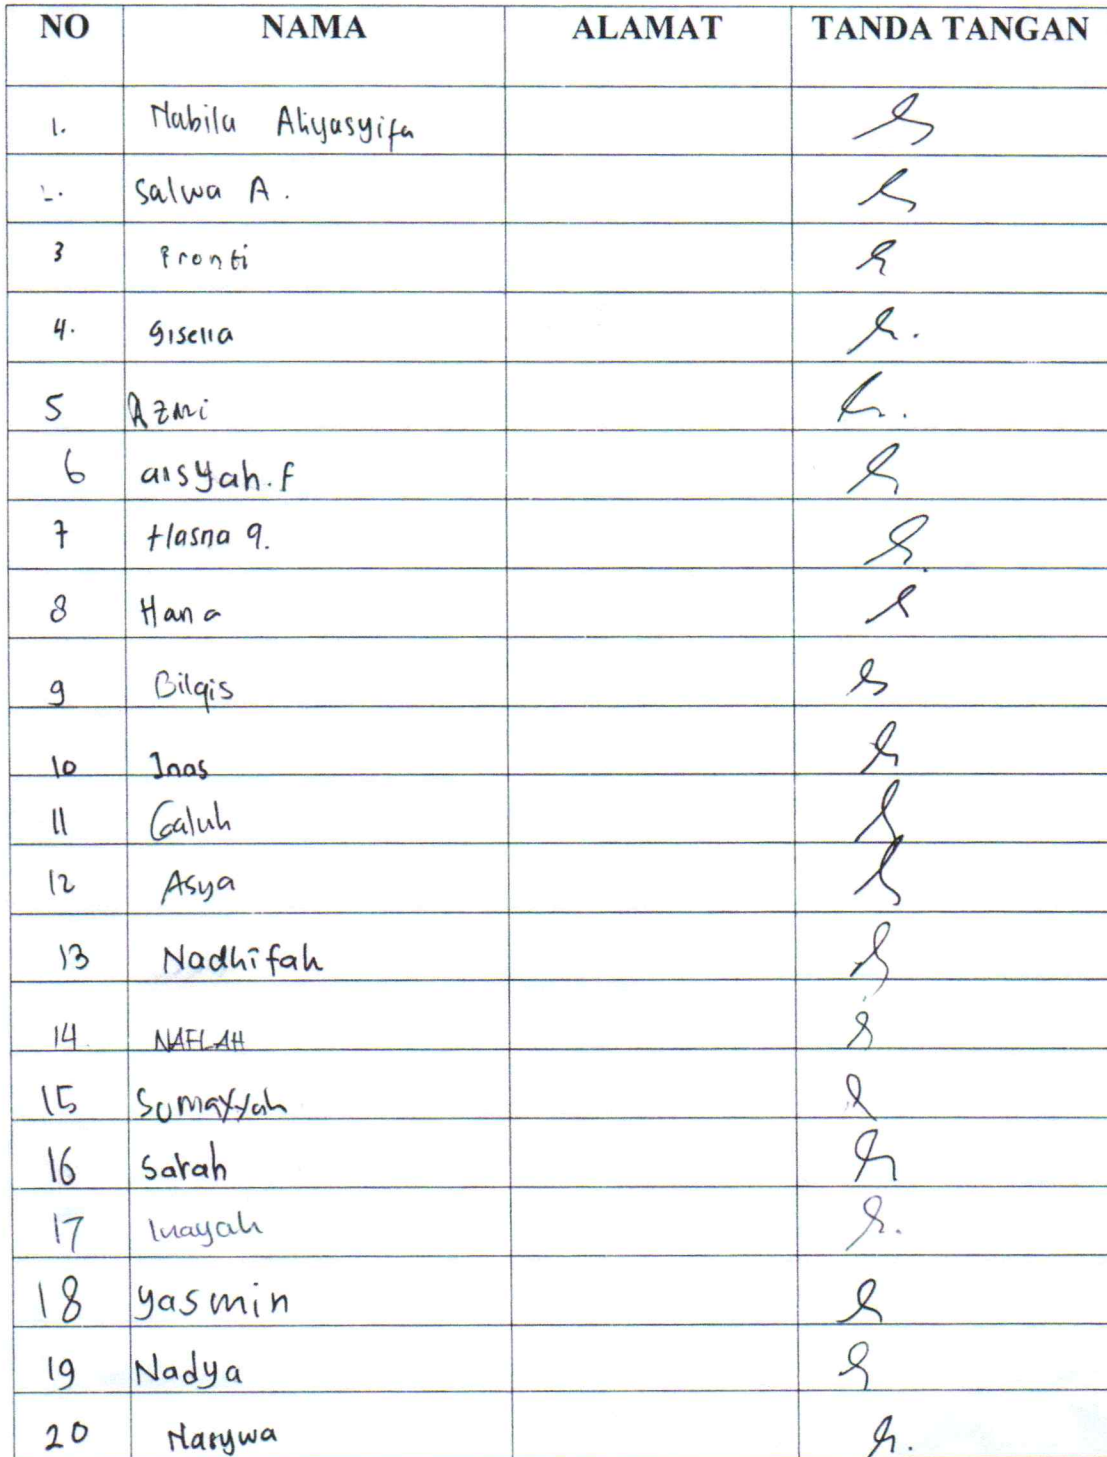 NO NAMA ALAMAT TANDA TANGAN
1. Nabila Aliyasyifa
2. Salwa A.
3 Pronti
4. gisella
5 Azmi
6 aisyah.f
7 Hasna q.
8 Hana
9 Bilqis
10 Inas
11 Galuh
12 Asya
13 Nadhifah
14 NAFLAH
15 Sumayyah
16 Sarah
17 Inayah
18 yasmin
19 Nadya
20